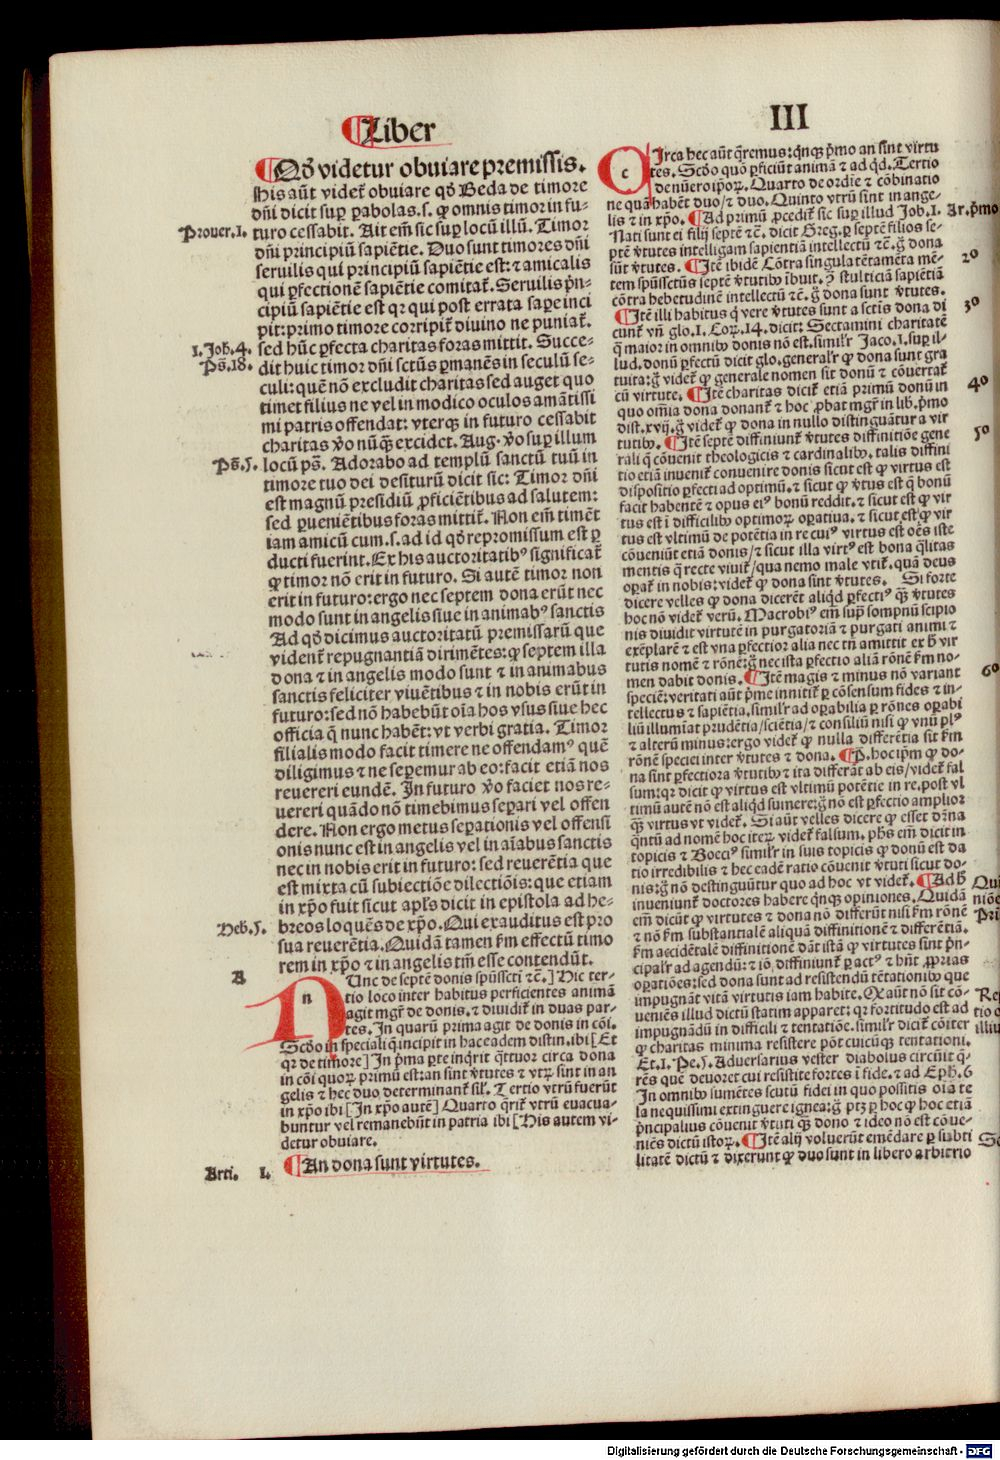 ¶Liber
III
¶Qđ videtur obuiare premissis.
His aūt videt᷑ obuiare qđ Beda de timore
dn̄i dicit suꝑ ꝑabolas.s. ꝙ omnis timor in fu-
Prouer.1.
turo cessabit. Ait em̄ sic suꝑ locū illū. Timor
dn̄i principiū sapiētie. Duo sunt timores dn̄i
seruilis qui principiū sapiētie est: ⁊ amicalis
qui ꝑfectionē sapiētie comitat᷑. Seruilis p̄n-
cipiū sapiētie est qꝛ qui post errata saꝑe inci
pit: primo timore corripit᷑ diuino ne puniat᷑.
1. Joh. 4.
sed hūc ꝑfecta charitas foras mittit. Succe-
Ps̄.18.
dit huic timor dn̄i sctūs ꝑmanēs in seculū se-
culi: quē nō excludit charitas sed auget quo
timet filius ne vel in modico oculos amātissi
mi patris offendat: vterqꝫ in futuro cessabit
charitas v̄o nūq̄ꝫ excidet. Aug. v̄o suꝑ illum
Ps̄.5.
locū ps̄. Adorabo ad templū sanctū tuū in
timore tuo dei desiturū dicit sic: Timor dn̄i
est magnū presidiū ꝓficiētibus ad salutem:
sed ꝑueniētibus foras mittit᷑. Non em̄ timēt
iam amicū cum.s. ad id qđ repromissum est ꝑ
ducti fuerint. Ex his auctoritatibꝰ significat᷑
ꝙ timor nō erit in futuro. Si autē timor non
erit in futuro: ergo nec septem dona erūt nec
modo sunt in angelis siue in animabꝰ sanctis
Ad qđ dicimus auctoritatū premissarū que
vident᷑ repugnantiā dirimētes: ꝙ septem illa
dona ⁊ in angelis modo sunt ⁊ in animabus
sanctis feliciter viuētibus ⁊ in nobis erūt in
futuro: sed nō habebūt oīa hos vsus siue hec
officia q̄ nunc habēt: vt verbi gratia. Timor
filialis modo facit timere ne offendamꝰ quē
diligimus ⁊ ne seꝑemur ab eo: facit etiā nos
reuereri eundē. In futuro v̄o faciet nos re-
uereri quādo nō timebimus seꝑari vel offen
dere. Non ergo metus seꝑationis vel offensi
onis nunc est in angelis vel in aīabus sanctis
nec in nobis erit in futuro: sed reuerētia que
est mixta cū subiectiōe dilectiōis: que etiam
in xp̄o fuit sicut apl̄s dicit in epistola ad he-
Heb.5.
breos loquēs de xp̄o. Qui exauditus est pro
sua reuerētia. Quidā tamen ẜm effectū timo
rem in xp̄o ⁊ in angelis tm̄ esse contendūt.
A
n
Unc de septē donis spūssctī ⁊c.] Hic ter-
tio loco inter habitus perficientes animā
agit mgr̄ de donis. ⁊ diuidit᷑ in duas par-
tes. In quarū prima agit de donis in cōi.
Scđo in speciali q̄ incipit in hac eadem distin. ibi [Et
qꝛ de timore] In p̄ma ꝑte inq̄rit q̄ttuor circa dona
in cōi quoꝝ primū est: an sint v̄tutes ⁊ vtꝝ sint in an
gelis ⁊ hec duo determinant᷑ sil᷑. Tertio vtrū fuerūt
in xp̄o ibi [In xp̄o autē] Quarto q̄rit᷑ vtrū euacua-
buntur vel remanebūt in patria ibi [His autem vi-
detur obuiare.
Arti. 1.
¶An dona sunt virtutes.
c
Irca hec aūt q̄remus: q̄nqꝫ p̄mo an sint virtu
tes. Scđo quō ꝑficiūt animā ⁊ ad qd. Tertio
de nūero ip̄oꝝ. Quarto de ordīe ⁊ cōbinatio
ne quā habēt duo/ ⁊ duo. Quinto vtrū sint in ange-
lis ⁊ in xp̄o. ¶Ad primū ꝓcedit᷑ sic suꝑ illud Job.1.
Ar.p̄mo
Nati sunt ei filij septē ⁊c. dicit Greg. ꝑ septē filios se-
ptē v̄tutes intelligam sapientiā intellectū ⁊c. g̊ dona
sūt v̄tutes. ¶Itē ibidē Cōtra singula tētamēta mē-
2o
tem spūssctūs septē v̄tutibꝰ ībuit. ꝯ̄ stulticiā sapiētiā
cōtra hebetudinē intellectū ⁊c. g̊ dona sunt v̄tutes.
¶Itē illi habitus q̄ vere v̄tutes sunt a sctīs dona di
3o
cunt᷑ vn̄ glo.1. Coꝝ.14. dicit: Sectamini charitatē
q̄ maior in omnibꝰ donis nō est. simil'r Jaco.1. suꝑ il-
lud. donū ꝑfectū dicit glo. general'r ꝙ dona sunt gra
tuita: g̊ videt᷑ ꝙ generale nomen sit donū ⁊ cōuertat᷑
cū virtute. ¶Itē charitas dicit᷑ etiā primū donū in
4o
quo om̄ia dona donant᷑ ⁊ hoc ꝓbat mgr̄ in lib. p̄mo
dist.xvij. g̊ videt᷑ ꝙ dona in nullo distinguātur a vir
tutibꝰ. ¶Itē septē diffiniunt᷑ v̄tutes diffinitiōe gene
5o
rali q̄ cōuenit theologicis ⁊ cardinalibꝰ. talis diffini
tio etiā inuenit᷑ conuenire donis sicut est ꝙ virtus est
dispositio ꝑfecti ad optimū. ⁊ sicut ꝙ v̄tus est q̄ bonū
facit habentē ⁊ opus eiꝰ bonū reddit. ⁊ sicut est ꝙ vir
tus est ī difficilibꝰ optimoꝝ oꝑatiua. ⁊ sicut est ꝙ vir
tus est vltimū de potētia in re cuiꝰ virtus est oēs iste
cōueniūt etiā donis/ ⁊ sicut illa virtꝰ est bona q̄litas
mentis q̄ recte viuit᷑/ qua nemo male vtit᷑. quā deus
oꝑat᷑ in nobis: videt᷑ ꝙ dona sint v̄tutes. Si forte
dicere velles ꝙ dona dicerēt aliqd ꝑfectiꝰ q̄ꝫ v̄tutes
hoc nō videt᷑ verū. Macrobiꝰ em̄ suꝑ sompnū scipio
nis diuidit virtutē in purgatoriā ⁊ purgati animi ⁊
exēplarē ⁊ est vna ꝑfectior alia nec tn̄ amittit ex ħ vir
tutis nomē ⁊ rōnē: g̊ nec ista ꝑfectio aliā rōnē ẜm no-
men dabit donis. ¶Itē magis ⁊ minus nō variant
6o
speciē: veritati aūt p̄me innitit᷑ ꝑ cōsensum fides ⁊ in-
tellectus ⁊ sapiētia. simil'r ad oꝑabilia ꝑ rōnes oꝑabi
liū illumīat prudētia/ sciētia/ ⁊ consiliū nisi ꝙ vnū plꝰ
⁊ alterū minus: ergo videt᷑ ꝙ nulla differētia sit ẜm
rōnē speciei inter v̄tutes ⁊ dona. ¶P. hoc ip̄m ꝙ do-
na sint ꝑfectiora v̄tutibꝰ ⁊ ita differāt ab eis/ videt᷑ fal
sum: qꝛ dicit ꝙ virtus est vltimū potētie in re. post vl
timū autē nō est aliqd sumere: g̊ nō est ꝑfectio amplior
q̄ꝫ virtus vt videt᷑. Si aūt velles dicere ꝙ esset dr̄na
q̄ntū ad nomē hoc iteꝝ videt᷑ falsum. ph̄s em̄ dicit in
topicis ⁊ Boeciꝰ simil'r in suis topicis ꝙ donū est da
tio irredibilis ⁊ hec eadē ratio cōuenit v̄tuti sicut do-
nis: g̊ nō destinguūtur quo ad hoc vt videt᷑. ¶Ad ħ
Qui
inueniunt᷑ doctores habere q̄nqꝫ opiniones. Quidā
niōe
em̄ dicūt ꝙ virtutes ⁊ dona nō differūt nisi ẜm rōnē
Pri
⁊ nō ẜm substantialē aliquā diffinitionē ⁊ differētiā.
ẜm accidētalē diffinitionē dāt istā ꝙ virtutes sint p̄n-
cipal'r ad agendū: ⁊ iō diffiniunt᷑ ꝑ actꝰ ⁊ hn̄t ꝓprias
oꝑatiōes: sed dona sunt ad resistendū tētationibꝰ que
impugnāt vitā virtutis iam habite. Qꝫ aūt nō sit cō-
Res
ueniēs illud dictū statim apparet: qꝛ fortitudo est ad
tio
impugnādū in difficili ⁊ tentatiōe. simil'r dicit᷑ cōiter
illiu
ꝙ charitas minima resistere pōt cuicūqꝫ tentationi.
Et.1. Pe.5. Aduersarius vester diabolus circūit q̄-
rēs quē deuoret cui resistite fortes ī fide. ⁊ ad Eph.6
In omnibꝰ sumētes scutū fidei in quo possitis oīa te
la nequissimi extinguere ignea: g̊ ptꝫ ꝑ hoc ꝙ hoc etiā
p̄ncipalius cōuenit v̄tuti q̄ꝫ dono ⁊ ideo nō est cōue-
niēs dictū istoꝝ. ¶Itē alij voluerūt emēdare ꝑ subti
Se
litatē dictū ⁊ dixerunt ꝙ duo sunt in libero arbitrio
Digitalisierung gefördert durch die Deutsche Forschungsgemeinschaft - DFG